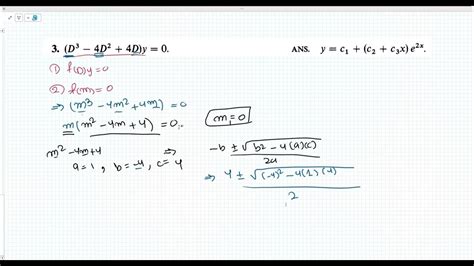 3. (D³ − 4D² + 4D)y = 0. ANS. y = c₁ + (c₂ + c₃x) e²ˣ.
① f(D)y = 0
② f(m) = 0
⇒ (m³ − 4m² + 4m) = 0
m(m² − 4m + 4) = 0. m = 0
m² − 4m + 4 ⇒
a = 1, b = −4, c = 4
−b ± √b² − 4(a)(c)
2a
⇒ 4 ± √(−4)² − 4(1)(4)
2